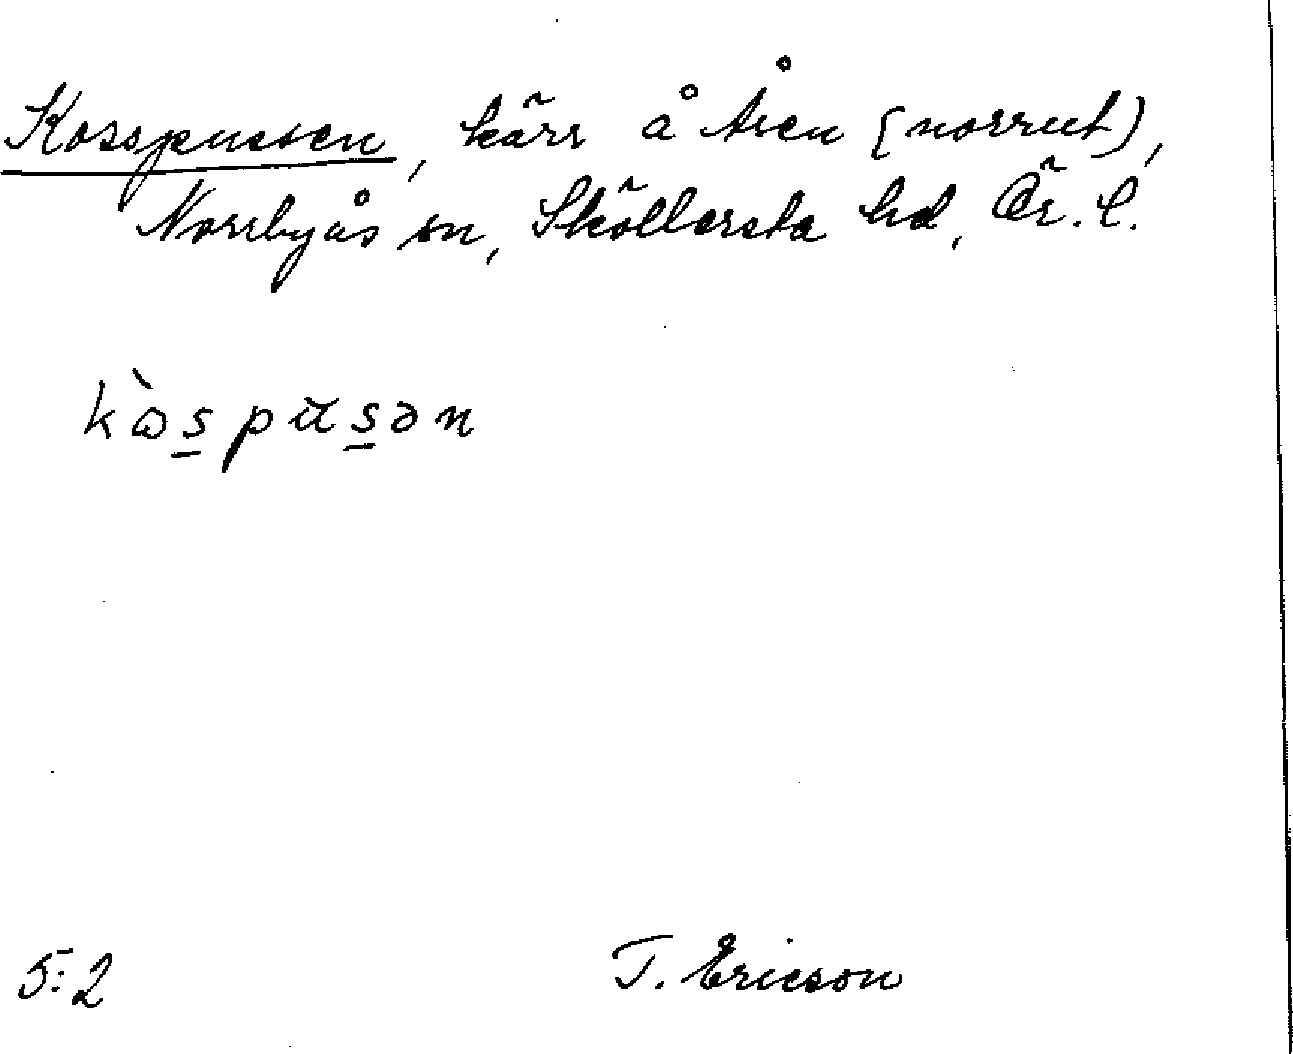 Kosspussen, kärr å Åsen (norrut),
Norrbyås sn, Sköllersta hd, Ör. l.
5:2
T. Ericson